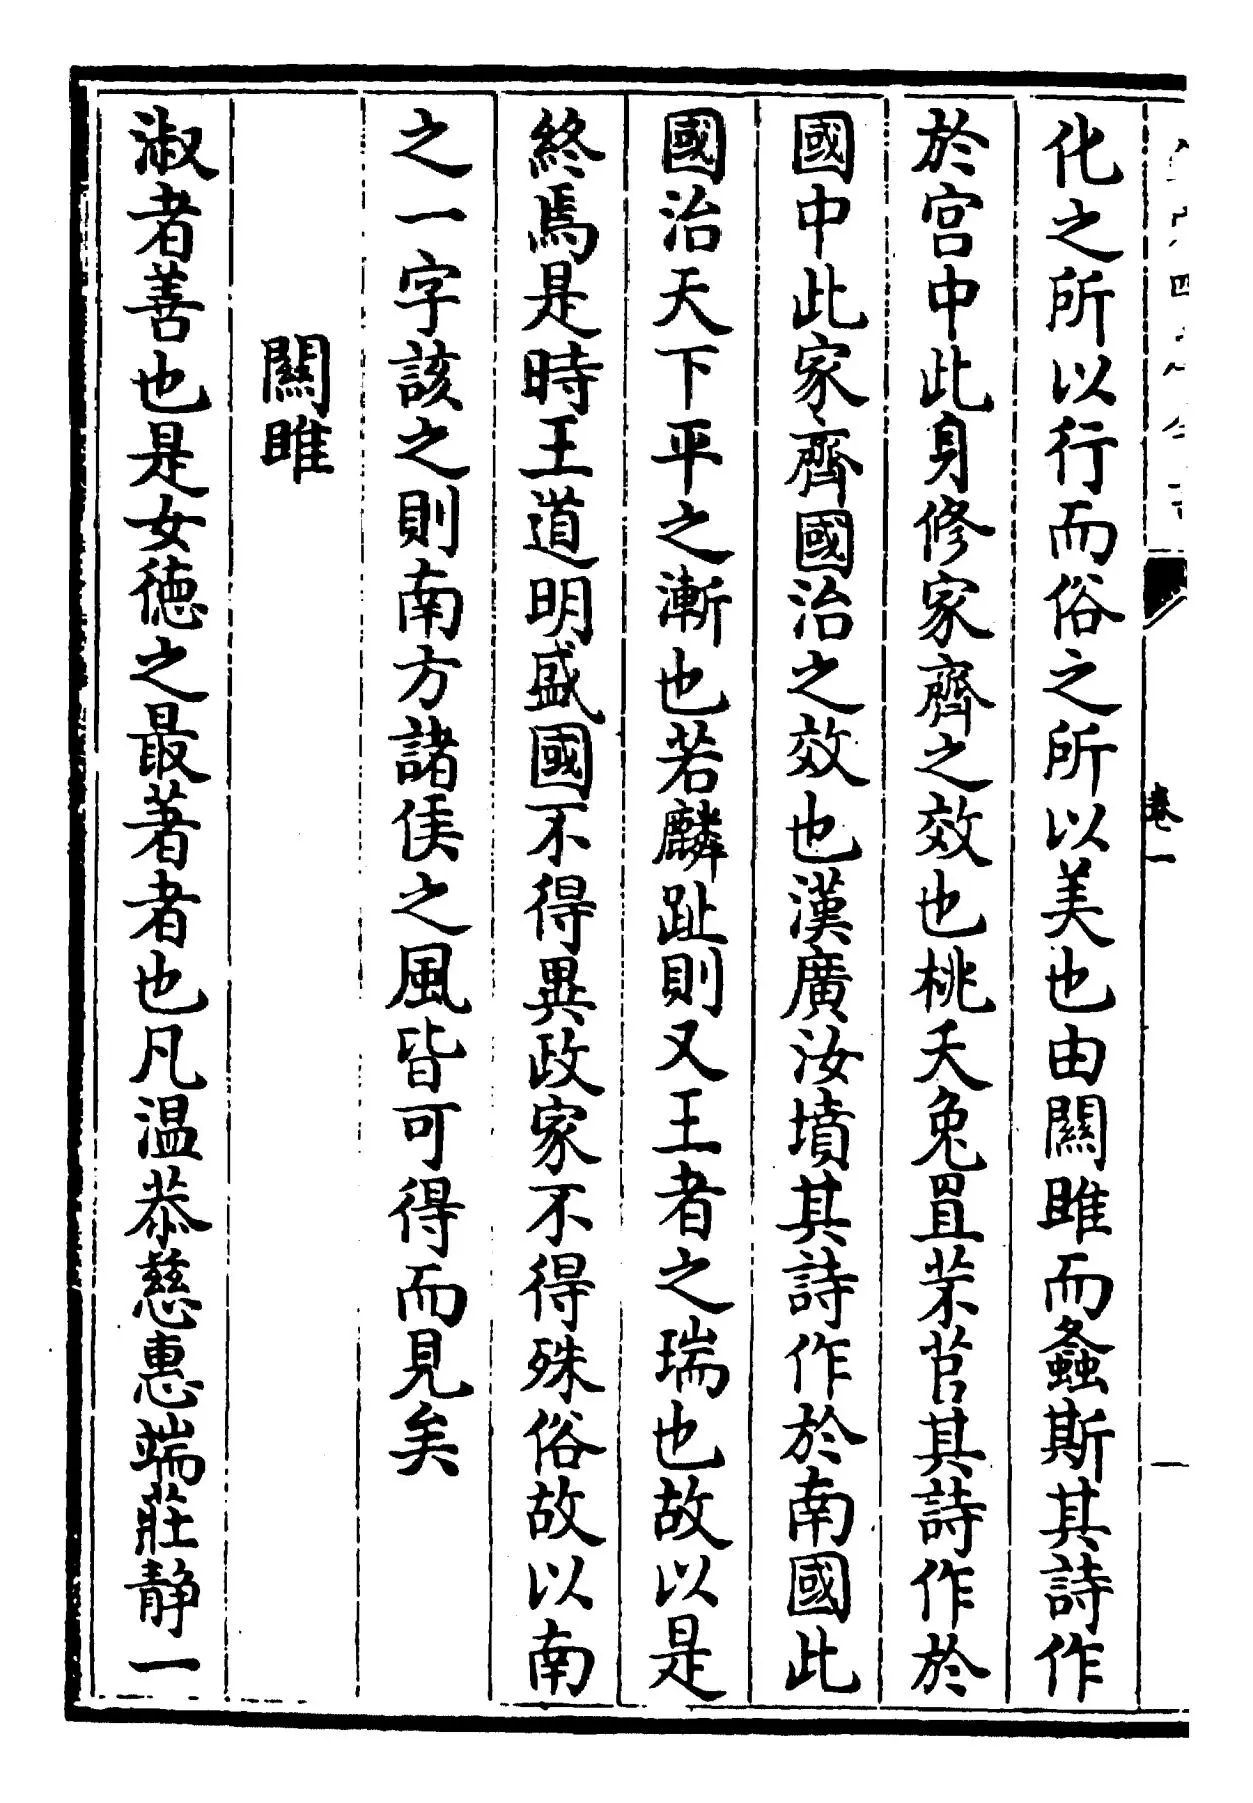 卷一
化之所以行而俗之所以美也由關雎而螽斯其詩作
於宫中此身修家齊之效也桃夭兔罝芣苢其詩作於
國中此家齊國治之效也漢廣汝墳其詩作於南國此
國治天下平之漸也若麟趾則又王者之瑞也故以是
終焉是時王道明盛國不得異政家不得殊俗故以南
之一字該之則南方諸侯之風皆可得而見矣
關雎
淑者善也是女徳之最著者也凡温恭慈惠端莊静一